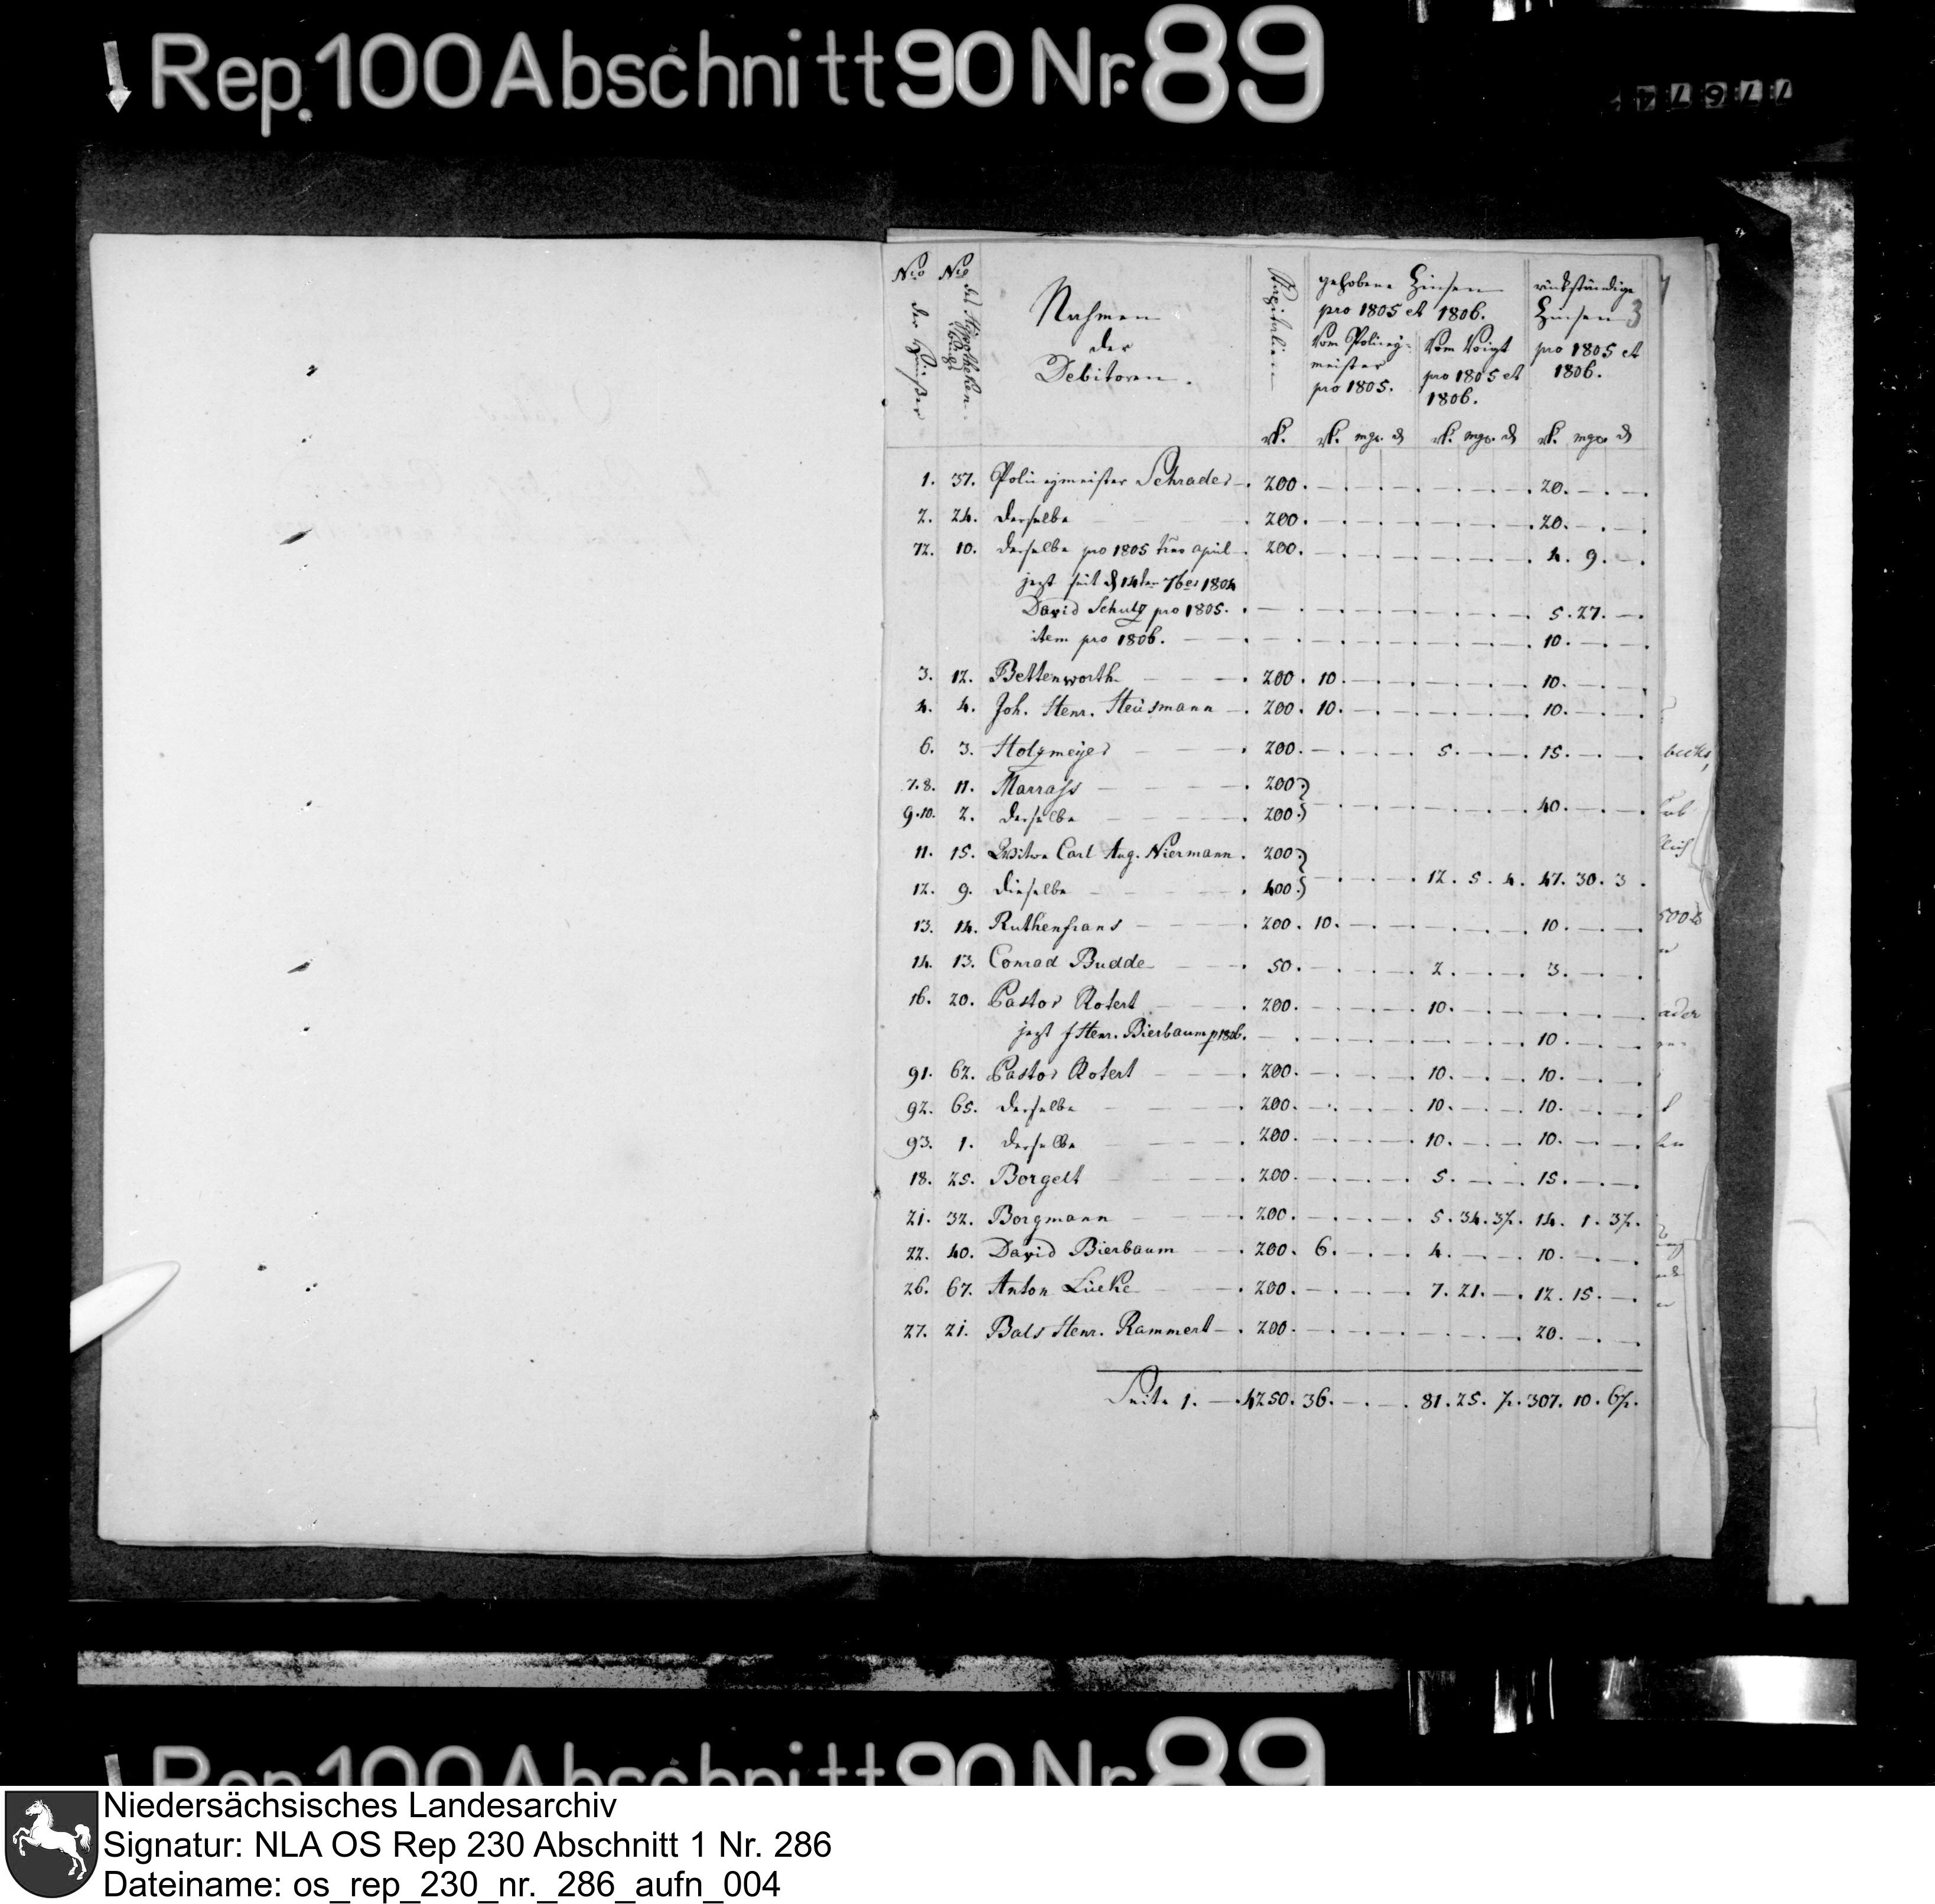 Rep. 100 Abschnitt 90 Nr. 89
77674
Nro der Häußer
Nro des Hypotheken Buchs
Nahmen
der
Debitoren.
Kapitalien
gehobene Zinsen
pro 1805 et 1806.
Vom Policey-
meister
pro 1805.
Vom Voigt
pro 1805 et
1806.
rückständige
Zinsen 3
pro 1805 et
1806.
rt. rt. mgr. d rt. mgr. d rt. mgr. d
1. 37. Policeymeister Schrader 200. 20.
2. 24. derselbe 200. 20.
72. 10. derselbe pro 1805 april 200. 4. 9.
jezt seit d 14ten 7ber 1804
David Schulz pro 1805. 5. 27.
item pro 1806. 10.
3. 12. Bettenworth 200. 10. 10.
4. 4. Joh. Henr. Heusmann 200. 10. 10.
6. 3. Holzmeyer 200. 5. 15.
7.8. 11. Marrass 200.
9.10. 2. derselbe 200. 40.
11. 15. Witwe Carl Aug. Niermann. 200.
12. 9. dieselbe 400. 12. 5. 4. 47. 30. 3.
13. 14. Ruthenfrans 200. 10. 10.
14. 13. Conrad Budde 50. 2. 3.
16. 20. Pastor Rotert 200. 10.
jezt Henr. Bierbaum p 1806. 10.
91. 62. Pastor Rotert 200. 10. 10.
92. 65. derselbe 200. 10. 10.
93. 1. derselbe 200. 10. 10.
18. 25. Borgelt 200. 5. 15.
21. 32. Borgmann 200. 5. 34. 3½. 14. 1. 3½.
22. 40. David Bierbaum 200. 6. 4. 10.
26. 67. Anton Lücke 200. 7. 21. 12. 15.
27. 21. Bals Henr. Rammert 200. 20.
Seite 1. 4250. 36. 81. 25. ½. 307. 10. 6½.
Rep. 100 Abschnitt 90 Nr. 89
Niedersächsisches Landesarchiv
Signatur: NLA OS Rep 230 Abschnitt 1 Nr. 286
Dateiname: os_rep_230_nr._286_aufn_004